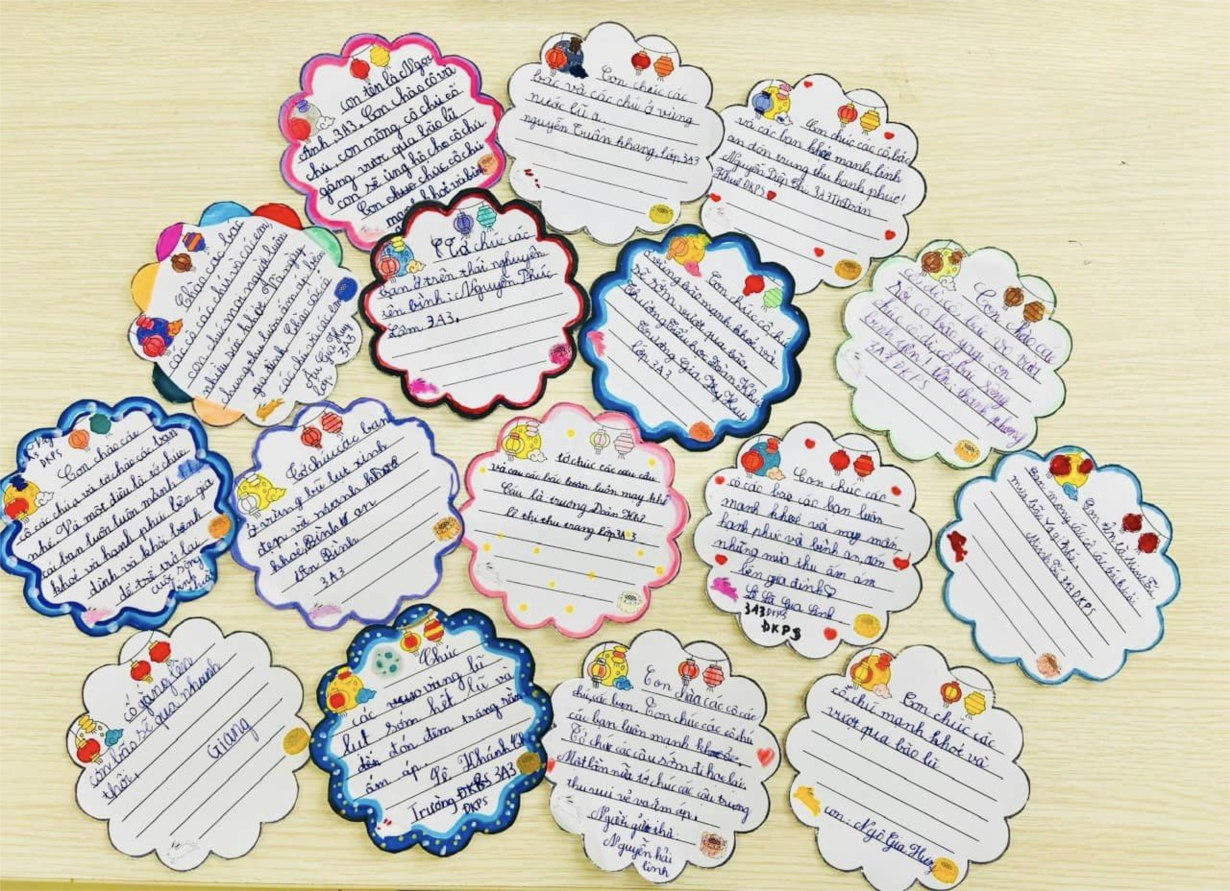 con tên là Ngọc
Anh 3A3. Con chào cô và
chú, con mong cô chú cố
gắng vượt qua bão lũ
con sẽ ủng hộ cho cô chú
Con chúc cô chú
mạnh khỏe và
Con chúc các
bác và các chú ở vùng
nước lũ ạ.
nguyễn Tuấn khang, lớp 3A3
Con chúc các cô bác
và các bạn khoẻ mạnh, bình
an đón trung thu hạnh phúc!
Nguyễn Diệp Chi 3A3 TH Đoàn
Khuê DKPS
Chào các bác
các cô các chú và các em,
con chúc mọi người luôn
nhiều sức khoẻ. Và ngày
trung thu luôn ấm áp bên
gia đình. Chào các cô
các chú và các bạn
Gia Huy
3A3
Tớ chúc các
bạn ở trên thái nguyên
yên bình: Nguyễn Phúc
Lâm 3A3.
Con chúc cô chú
ở vùng bão mạnh khoẻ và
sẽ sớm vượt qua bão.
Trường Tiểu học Đoàn Khuê
Trương Gia Huy
lớp 3A3
Con chào các
cô dì chú bác ở
nơi có bão
chúc cô dì có cuộc sống
bình yên! tên: thanh phong
3A3 DKPS
DKPS
Con chào các
cô các chú ạ và tớ chào các bạn
nhé. Và một điều là tớ chúc
các bạn luôn luôn mạnh
khoẻ và hạnh phúc bên gia
đình và khỏi bệnh
để trở lại
cuộc sống
Tớ chúc các bạn
ở vùng bị lũ lụt xinh
đẹp và mạnh
khoẻ, Bình an
Yên Bình
3A3
tớ chúc các cậu
và các bác toàn luôn may
Cậu là trường Đoàn Khuê
lê thị thu trang lớp 3A3
Con chúc các
cô các bác các bạn luôn
mạnh khoẻ và may mắn
hạnh phúc và bình an đón
những mùa thu ấm áp
bên gia đình
Lê Gia Linh
3A3 DKPS
DKPS
Con tên là
Con mong các cô các bác
3A3 DKPS
cố gắng lên
cơn bão sẽ qua nhanh
thôi.
Giang
Chúc
các vùng lũ
lụt sớm hết lũ và
đón đêm trăng rằm
ấm áp.
Lê Khánh
Trường DKPS 3A3
DKPS
Con chào các cô các
chú, các bạn. Con chúc các cô chú
các bạn luôn mạnh khoẻ.
Tớ chúc các cậu sớm đi học lại.
Một lần nữa tớ chúc các cậu trung
thu vui vẻ và ấm áp.
Người gửi thư:
Nguyễn hải
linh
Con chúc các
cô chú mạnh khoẻ và
vượt qua bão lũ
con: Ngô Gia Huy